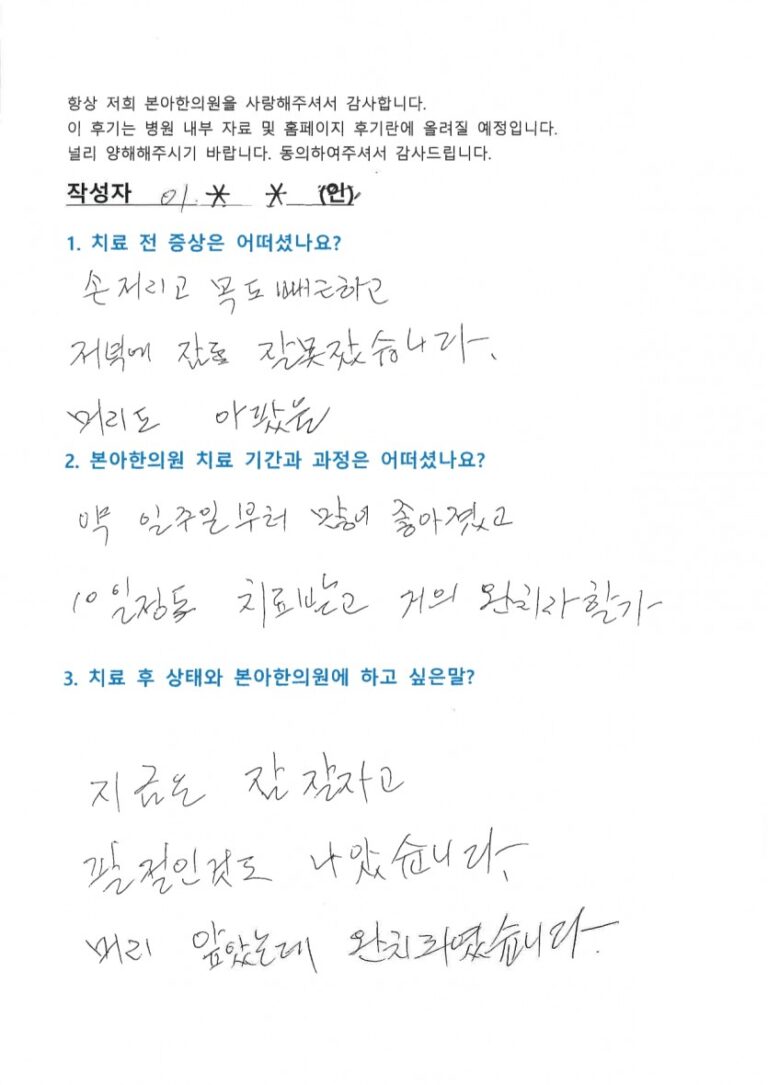 항상 저희 본아한의원을 사랑해주셔서 감사합니다.
이 후기는 병원 내부 자료 및 홈페이지 후기란에 올려질 예정입니다.
널리 양해해주시기 바랍니다. 동의하여주셔서 감사드립니다.
작성자 이 * * (인)
1. 치료 전 증상은 어떠셨나요?
손저리고 목도 빼근하고
저녁에 잠도 잘못잤습니다.
머리도 아팠음
2. 본아한의원 치료 기간과 과정은 어떠셨나요?
약 일주일부터 많이 좋아졌고
10일정동 치료받고 거의 완치라할가
3. 치료 후 상태와 본아한의원에 하고 싶은말?
지금은 잠 잘자고
팔절인것도 나았습니다.
머리 앞았는데 완치되였습니다.